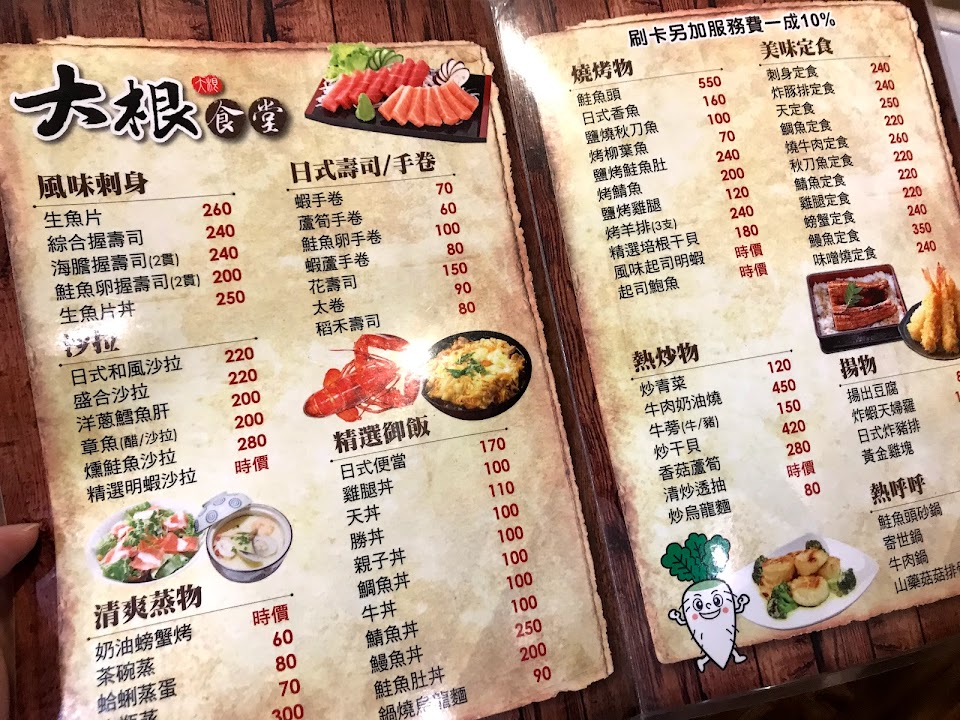 大根食堂
大根
風味刺身
生魚片 260
綜合握壽司 240
海膽握壽司(2貫) 240
鮭魚卵握壽司(2貫) 200
生魚片丼 250
沙拉
日式和風沙拉 220
盛合沙拉 220
洋蔥鱈魚肝 200
章魚(醋/沙拉) 200
燻鮭魚沙拉 280
精選明蝦沙拉 時價
清爽蒸物
奶油螃蟹烤 時價
茶碗蒸 60
蛤蜊蒸蛋 80
瓶蒸 70
300
日式壽司/手卷
蝦手卷 70
蘆筍手卷 60
鮭魚卵手卷 100
蝦蘆手卷 80
花壽司 150
太卷 90
稻禾壽司 80
精選御飯
日式便當 170
雞腿丼 100
天丼 110
勝丼 100
親子丼 100
鯛魚丼 100
牛丼 100
鯖魚丼 100
鰻魚丼 250
鮭魚肚丼 200
鍋燒烏龍麵 90
刷卡另加服務費一成10%
燒烤物
鮭魚頭 550
日式香魚 160
鹽燒秋刀魚 100
烤柳葉魚 70
鹽烤鮭魚肚 240
烤鯖魚 200
鹽烤雞腿 120
烤羊排(3支)
精選培根干貝 180
風味起司明蝦 時價
起司鮑魚 時價
熱炒物
炒青菜 120
牛肉奶油燒 450
牛蒡(牛/豬) 150
炒干貝 420
香菇蘆筍 280
清炒透抽 時價
炒烏龍麵 80
美味定食
刺身定食 240
炸豚排定食 240
天定食 250
鯛魚定食 220
燒牛肉定食 260
秋刀魚定食 220
鯖魚定食 220
雞腿定食 220
螃蟹定食 240
鰻魚定食 350
味噌燒定食 240
揚物
揚出豆腐
炸蝦天婦羅
日式炸豬排
黃金雞塊
熱呼呼
鮭魚頭砂鍋
寄世鍋
牛肉鍋
山藥菇菇排